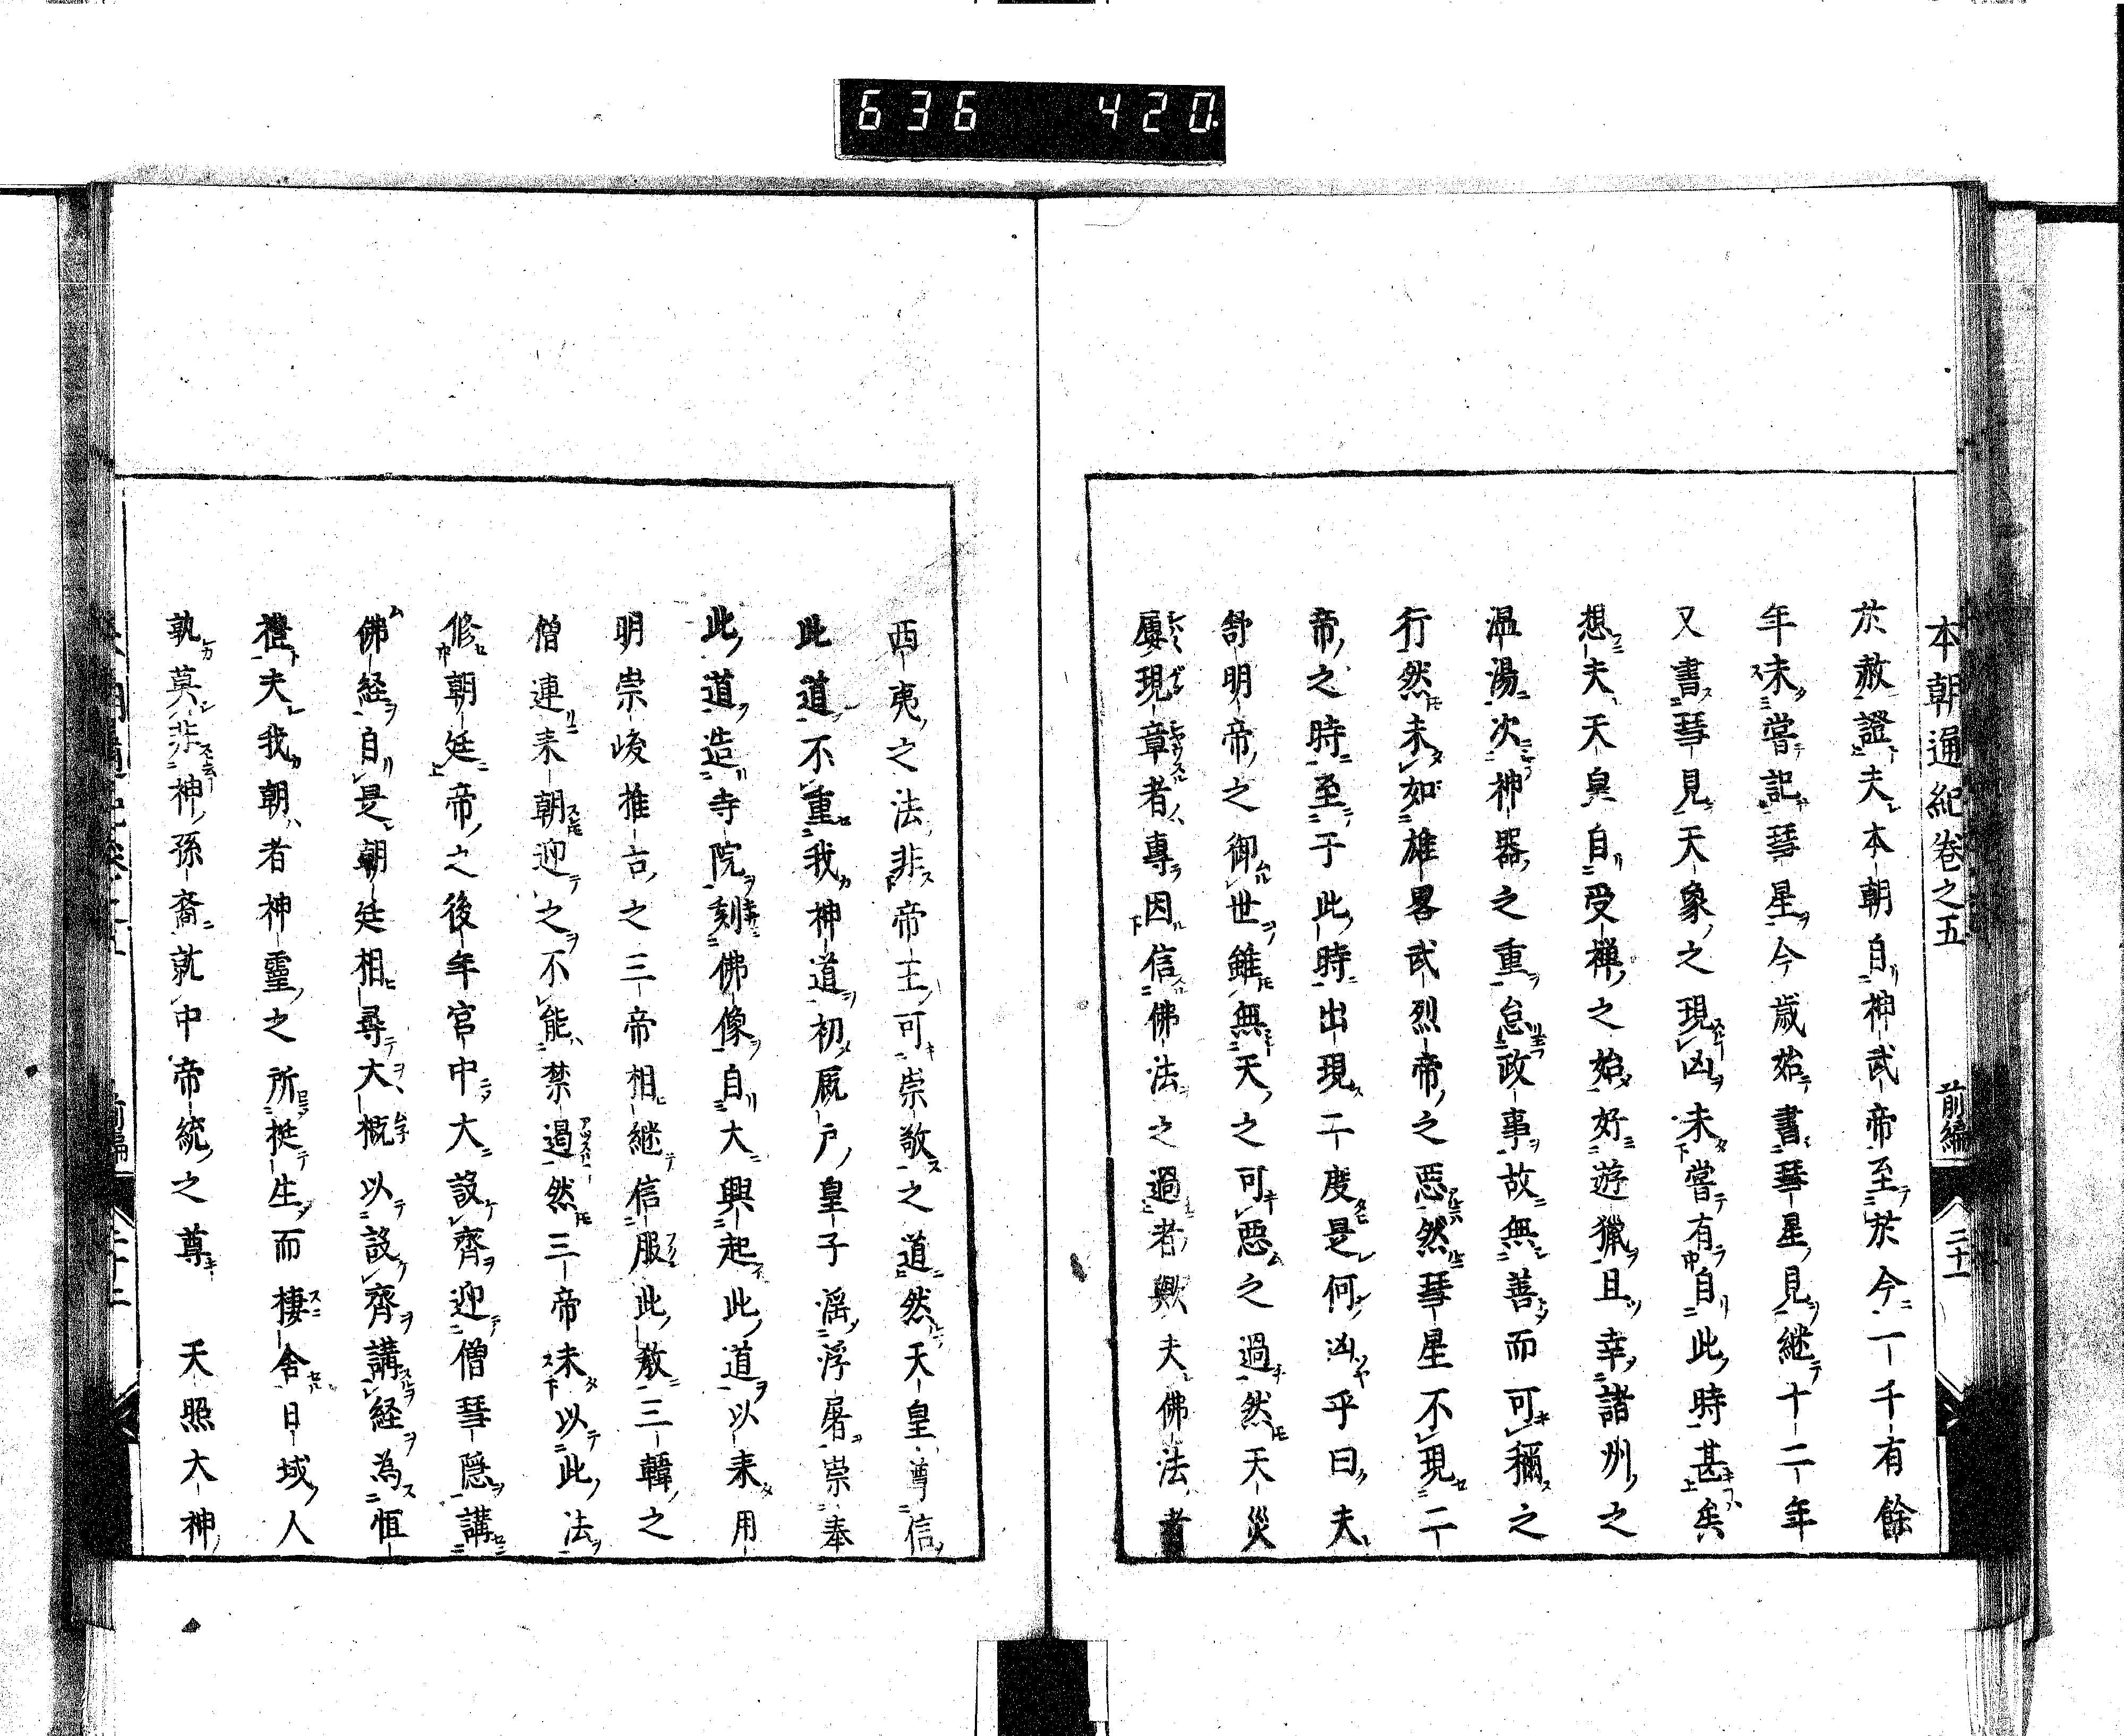 636 420.
本朝通紀卷之五 前編 二十一
於赦證夫本朝自神武帝至於今一千有餘
年未嘗記彗星今歳始書彗星見継十二年
又書彗見天象之現凶未嘗有自此時甚矣
想夫天皇自受禅之始好遊獵且幸諸州之
温湯次神器之重怠政事故無善而可稱之
行然未如雄畧武烈帝之惡然彗星不現二
帝之時至于此時出現二度是何凶乎曰夫
舒明帝之御世雖無天之可惡之過然天災
屢現章者專因信佛法之過者歟夫佛法者
西夷之法非帝王可崇敬之道然天皇尊信
此道不重我神道初厩戸皇子滛浮屠崇奉
此道造寺院刻佛像自大興起此道以来用
明崇峻推古之三帝相継信服此教三韓之
僧連来朝迎之不能禁遏然三帝未以此法
修朝廷帝之後年官中大設齊迎僧彗隱講
佛経自是朝廷相尋大概以設齊講経為恒
禮夫我朝者神靈之所挺生而棲舍日域人
孰莫非神孫裔就中帝統之尊 天照大神